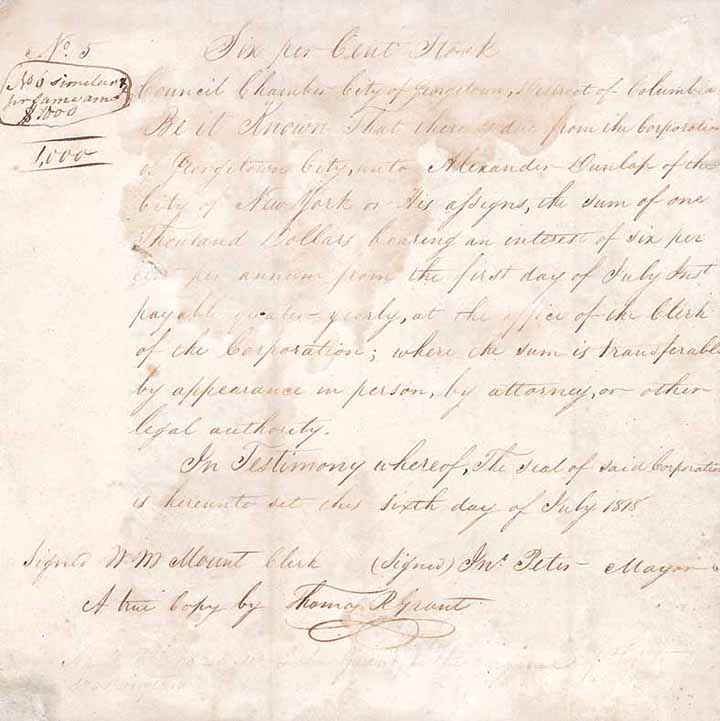 No. 5
Six per Cent Stock
No 6 similar &
for same am
$1000
1,000
Council Chamber City of Georgetown, District of Columbia
Be it Known That there is due from the Corporation
of Georgetown City, unto Alexander Dunlap of the
City of New York or His assigns, the sum of one
Thousand Dollars bearing an interest of six per
cent per annum from the first day of July Inst
payable quater-yearly, at the office of the Clerk
of the Corporation; where the sum is transferable
by appearance in person, by attorney, or other
legal authority.
In Testimony whereof, The seal of said Corporation
is hereunto set this sixth day of July 1818
Signed W M Mount Clerk (Signed) Jno. Peter Mayor
A true Copy by Thomas R Grant